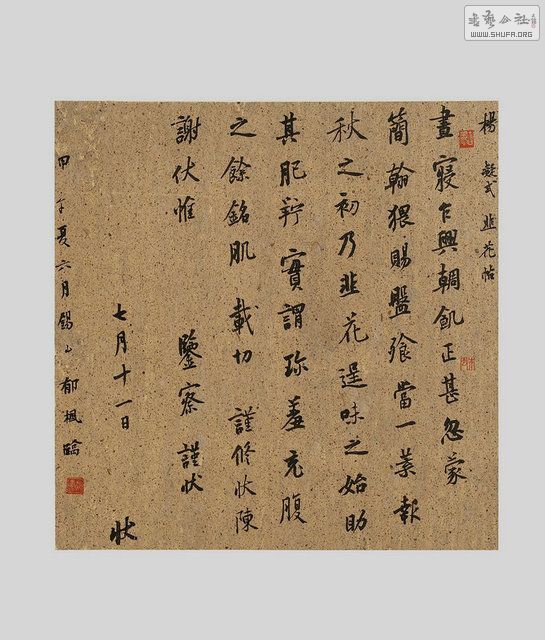 楊凝式韭花帖
晝寢乍興輖飢正甚忽蒙
簡翰猥賜盤飱當一葉報
秋之初乃韭花逞味之始助
其肥羜實謂珍羞充腹
之餘銘肌載切 謹修狀陳
謝伏惟 鑒察謹狀
七月十一日 狀
甲午夏六月錫山郁楓臨
書藝公社
WWW.SHUFA.ORG